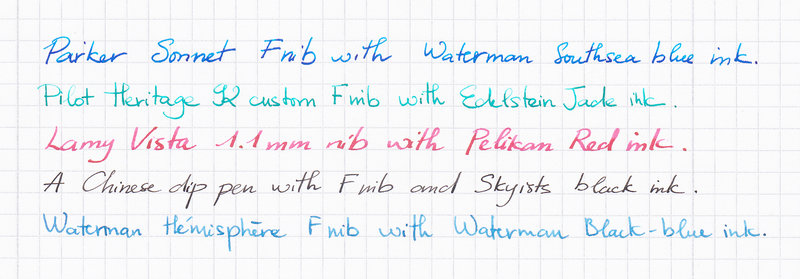 Parker Sonnet F nib with Waterman Southsea blue ink.
Pilot Heritage 92 custom F nib with Edelstein Jade ink.
Lamy Vista 1.1 mm nib with Pelikan Red ink.
A Chinese dip pen with F nib and Skyists black ink.
Waterman Hémisphère F nib with Waterman Black-blue ink.